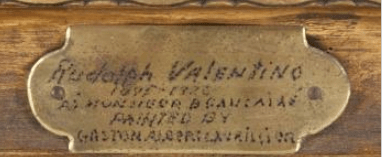 Rudolph Valentino
1895-1926
AS MONSIEUR BEAUCAIRE
PAINTED BY
GASTON ALBERT